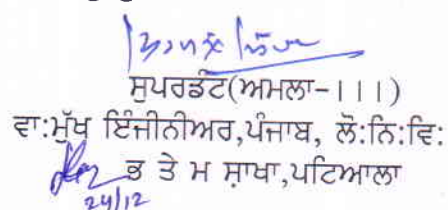 ਸੁਪਰਡੰਟ(ਅਮਲਾ-।।।)
ਵਾ:ਮੁੱਖ ਇੰਜੀਨੀਅਰ,ਪੰਜਾਬ, ਲੋ:ਨਿ:ਵਿ:
ਭ ਤੇ ਮ ਸ਼ਾਖਾ,ਪਟਿਆਲਾ
24/12